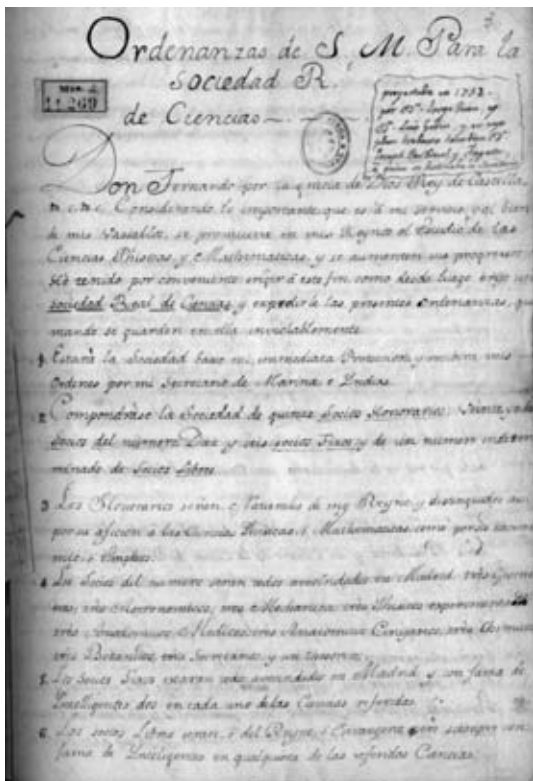 Ordenanzas de S. M. Para la
Sociedad R.
de Ciencias
11.269
proyectadas en 1753.
por Dn. Jorge Juan, y
Dn. Luis Godin, y en cuyo
Don Fernando por la gracia de Dios Rey de Castilla,
&c. &c. Considerando lo importante que es á mi servicio, y al bien
de mis Vassallos, se promueva en mis Reynos el estudio de las
Ciencias Phisicas, y Mathematicas, y se aumenten sus progresos
Hé tenido por conveniente erigir á este fin, como desde luego erijo una
sociedad Real de Ciencias, y expedirle las presentes Ordenanzas, que
mando se guarden en ella inviolablemente.
1. Estará la Sociedad baxo mi immediata Proteccion, y recibirá mis
Ordenes por mi Secretario de Marina e Yndias.
2 Compondráse la Sociedad de quince Socios Honorarios,
socios del numero Diez y seis socios y de un numero indeter
minado de Socios Libres.
3 Los Honorarios serán Naturales de mis Reynos, y distinguidos assi
por su aficion a las Ciencias Phisicas, ó Mathematicas, como por su
Empleos.
4 Los Socios del numero serán todos avecindados en Madrid, tres Geome
tras, tres Astronomicos, tres Mechanicos, tres Phisicos experimentales
tres Anatomicos Medicos, tres Anatomicos Cirujanos, tres Chimicos
tres Botanicos, tres Secretarios, y un Tesorero.
5. Los Socios estaran todos avecindados en Madrid y con fama de
Inteligentes dos en cada una de las Ciencias referidas.
6. Los socios Libres seran, ó del Reyno, ó Estrangeros, pero siempre con
fama de Ynteligentes en qualquiera de las referidas Ciencias.